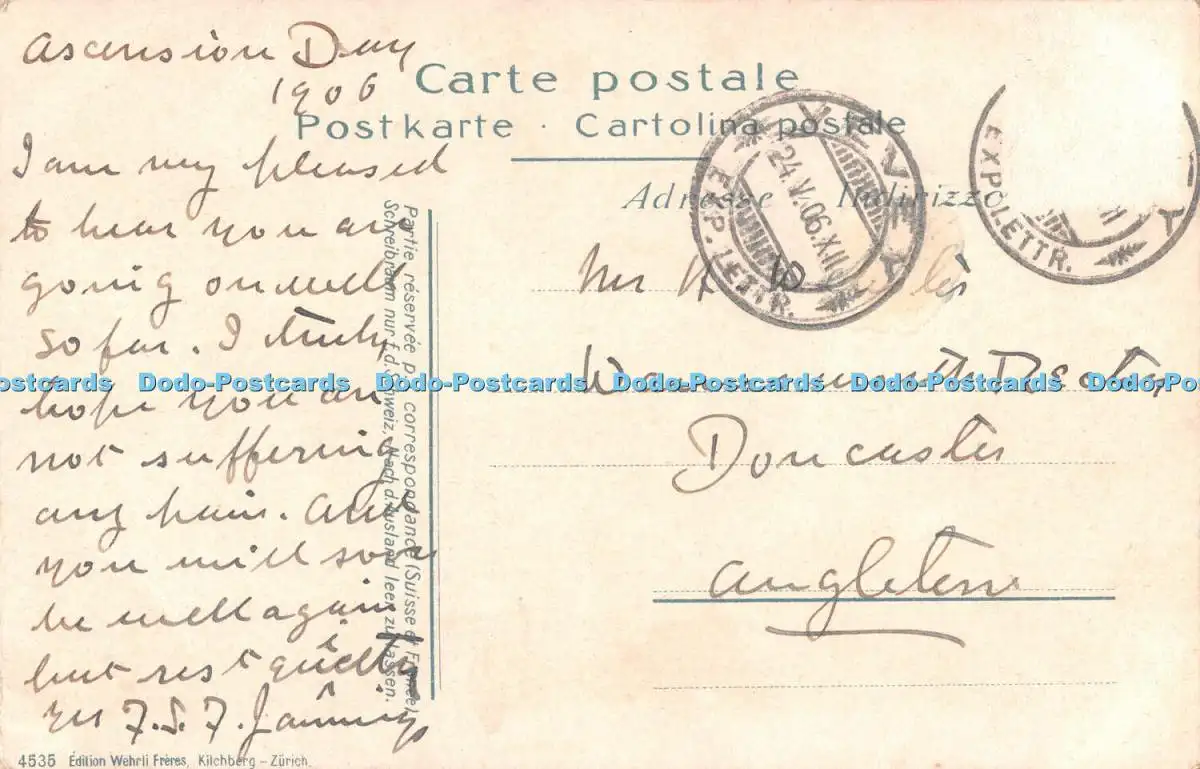 Ascension Day
1906
Carte postale
Postkarte · Cartolina postale
Adresse Indirizzo
I am very pleased
to hear you are
going on well
so far. I truly
hope you are
not suffering
any pain. And
you will soon
be well again
but rest quietly
yrs F.S.F. Jannings
Partie réservée p. l. correspondance (Suisse et France).
Schreibraum nur f. d. Schweiz, Nach d. Ausland leer zu lassen.
VEVEY
24.V.06.XII
EXP. LETTR.
EXP. LETTR.
Mr H
Doncaster
Angleterre
Dodo-Postcards Dodo-Postcards Dodo-Postcards Dodo-Postcards Dodo-Postcards
4535 Édition Wehrli Frères, Kilchberg – Zürich.